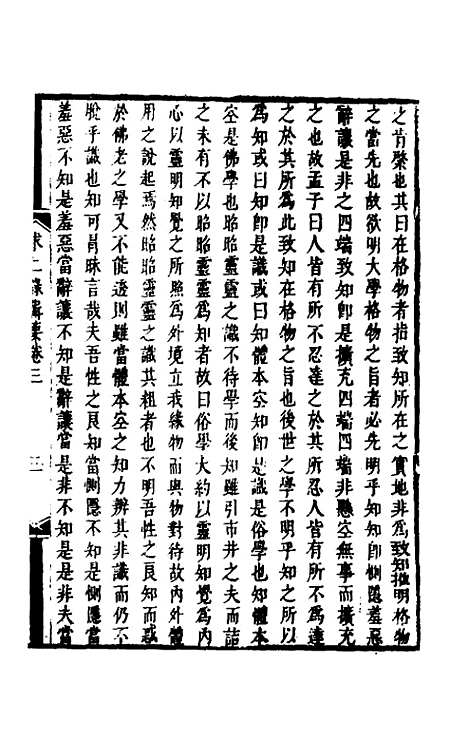 之肯綮也其曰在格物者指致知所在之實地非爲致知推明格物
之當先也故欲明大學格物之旨者必先明乎知知卽惻隱羞惡
辭讓是非之四端致知卽是擴充四端四端非懸空無事而擴充
之也故孟子曰人皆有所不忍達之於其所忍人皆有所不爲達
之於其所爲此致知在格物之旨也後世之學不明乎知之所以
爲知或曰知卽是識或曰知體本空知卽是識是俗學也知體本
空是佛學也昭昭靈靈之識不待學而後知雖引市井之夫而詰
之未有不以昭昭靈靈知者故曰俗學大約以靈明知覺爲內
心以靈明知覺之所照爲外境立我緣物而與物對待故內外體
用之說起焉然昭昭靈靈識其粗者也不明吾性之良知而惑
於佛老之學又不能透則雖當體本空之知力辨其非識而仍不
脫乎識也知可易昧言哉夫吾性之良知當惻隱不知是惻隱當
羞惡不知是羞惡當辭讓不知是辭讓當是非不知是是非夫當
求仁錄輯要卷三